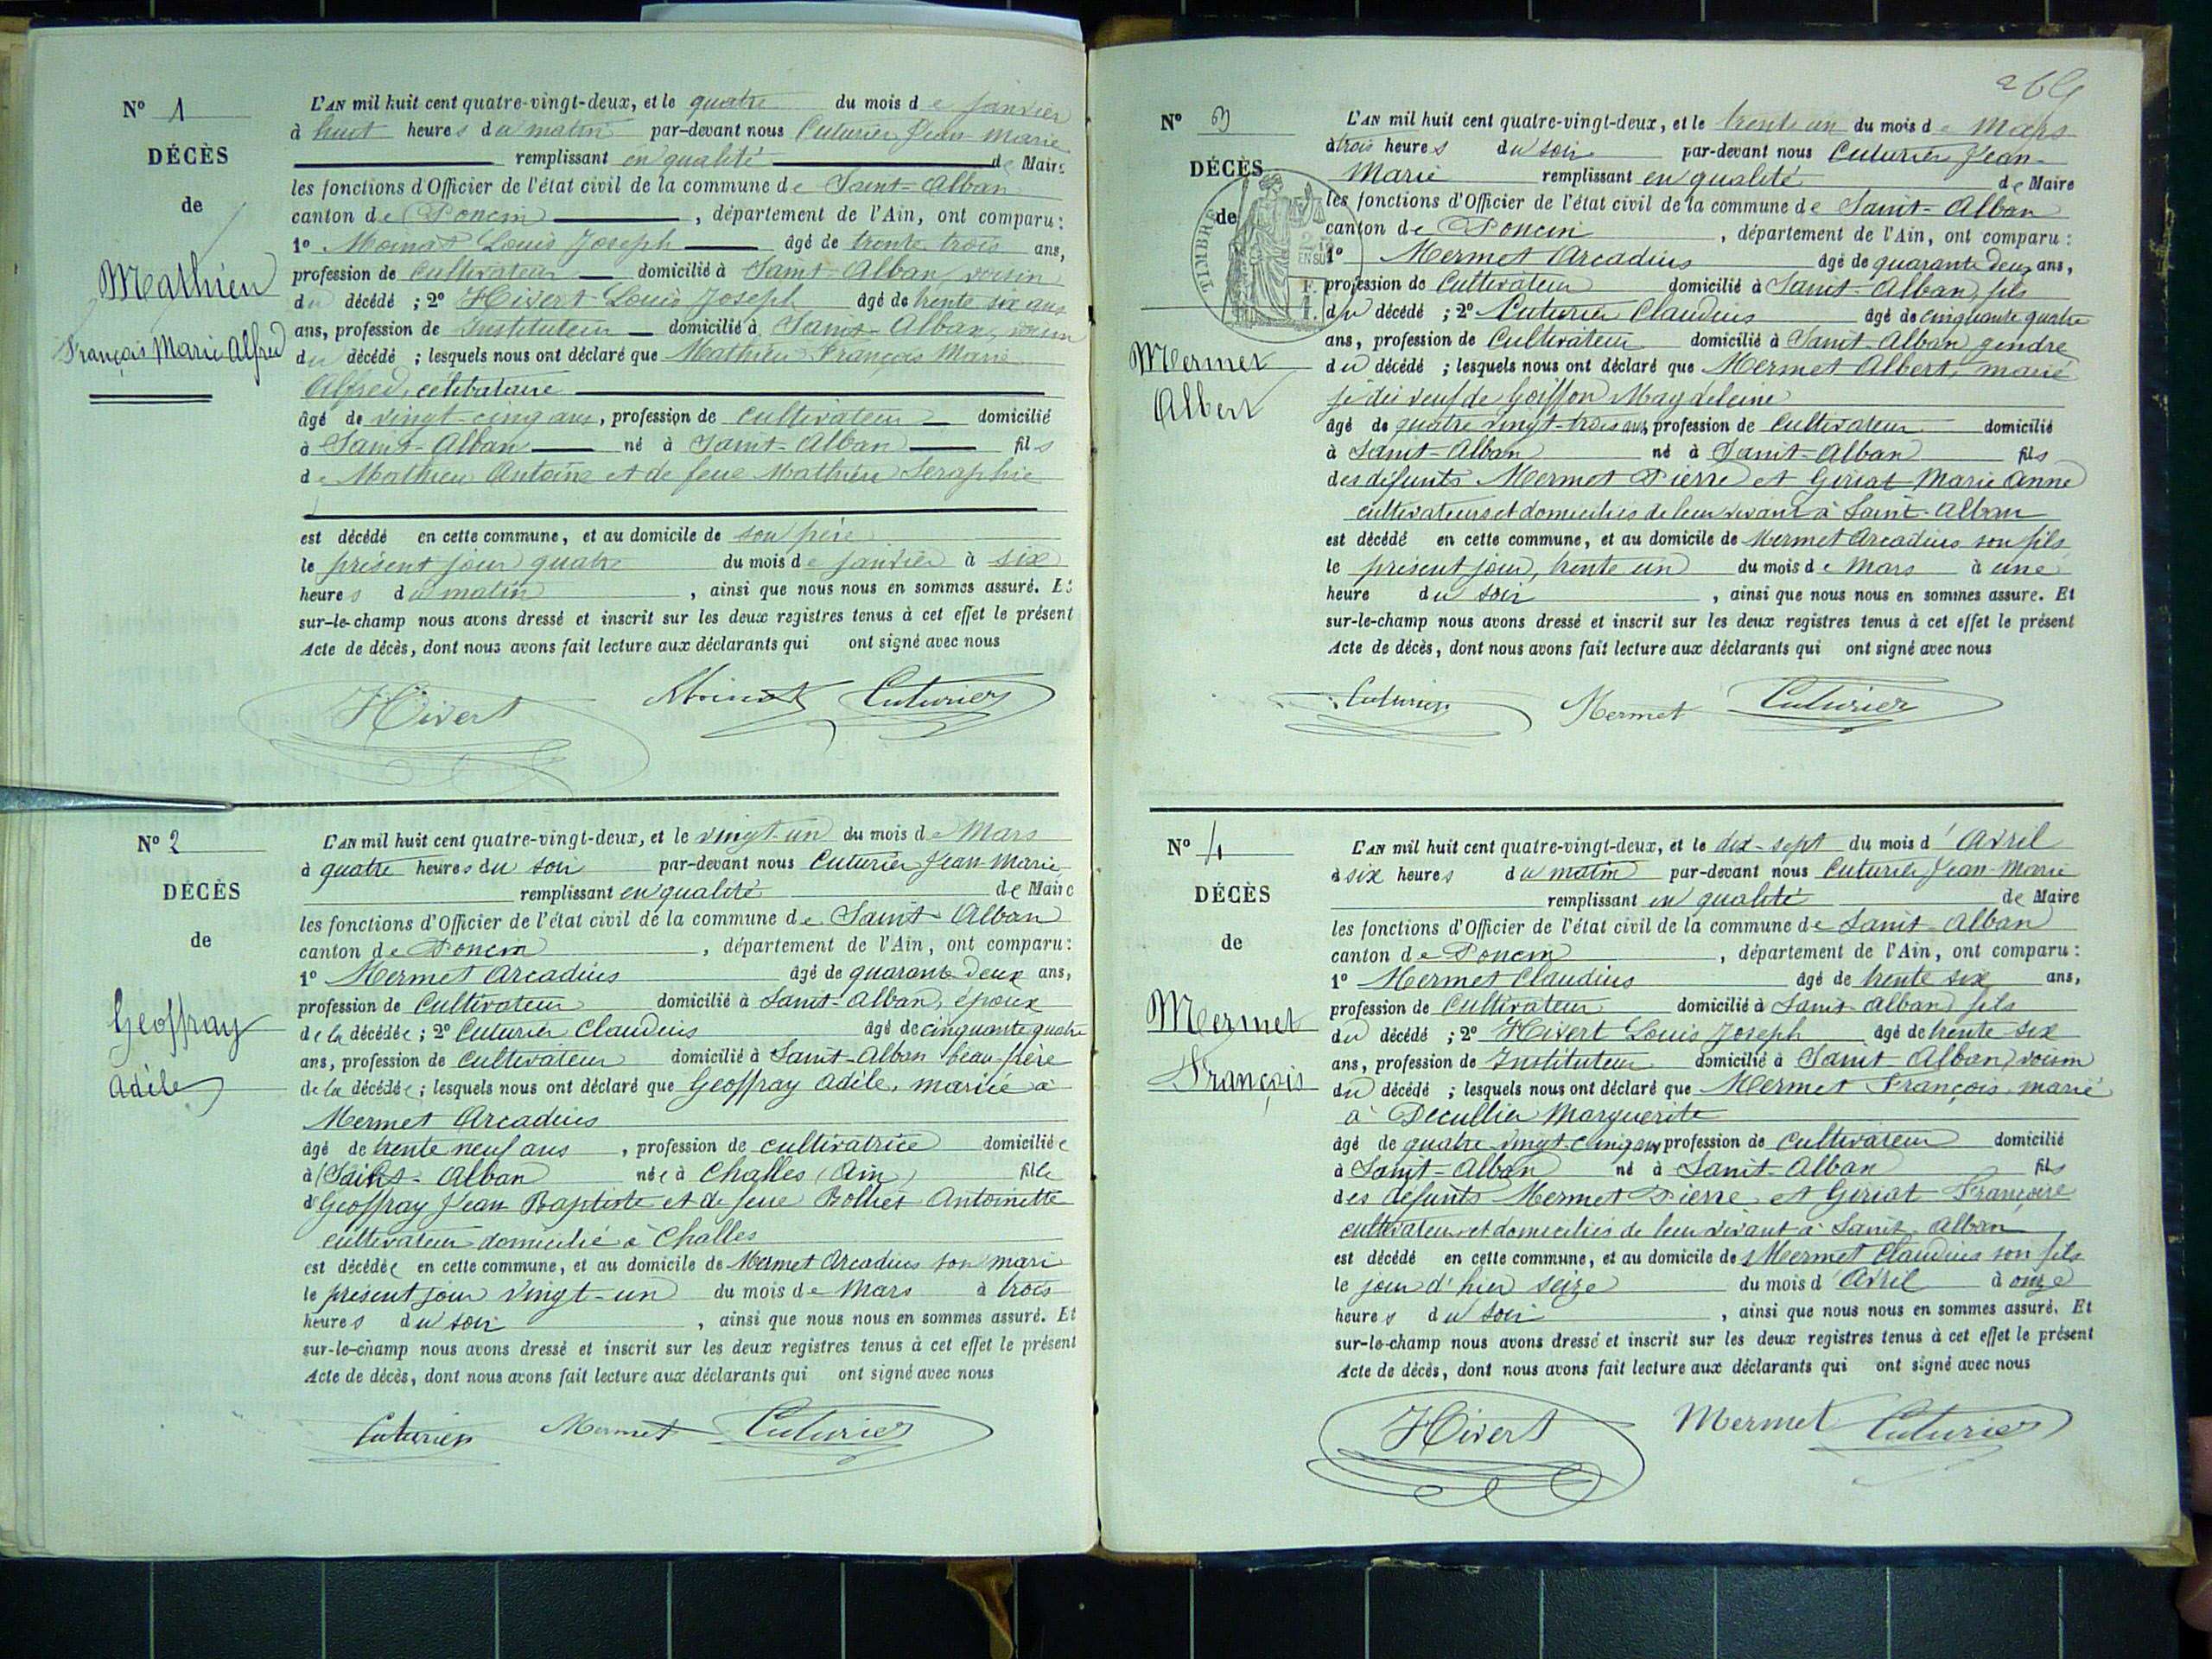 N° 1
DÉCÈS
de
Mathieu
François Marie Alfred
L'AN mil huit cent quatre-vingt-deux, et le quatre du mois de janvier
à huit heures du matin par-devant nous Cuturier Jean-Marie
remplissant en qualité de Maire
les fonctions d'Officier de l'état civil de la commune de Saint-Alban
canton de Poncin, département de l'Ain, ont comparu:
1° Moinat Louis Joseph âgé de trente trois ans,
profession de cultivateur domicilié à Saint-Alban, voisin
du décédé ; 2° Hivert Louis Joseph âgé de trente six ans
ans, profession de Instituteur domicilié à Saint-Alban, voisin
du décédé ; lesquels nous ont déclaré que Mathieu François Marie
Alfred, célibataire
âgé de vingt-cinq ans, profession de cultivateur domicilié
à Saint-Alban né à Saint-Alban fils
de Mathieu Antoine et de feue Mathieu Seraphie
est décédé en cette commune, et au domicile de son père
le présent jour quatre du mois de janvier à six
heures du matin, ainsi que nous nous en sommes assuré. Et
sur-le-champ nous avons dressé et inscrit sur les deux registres tenus à cet effet le présent
Acte de décès, dont nous avons fait lecture aux déclarants qui ont signé avec nous
Hivert Moinat Cuturier
N° 2
DÉCÈS
de
Geoffray
Adèle
L'AN mil huit cent quatre-vingt-deux, et le vingt-un du mois de Mars
à quatre heures du soir par-devant nous Cuturier Jean-Marie
remplissant en qualité de Maire
les fonctions d'Officier de l'état civil de la commune de Saint-Alban
canton de Poncin, département de l'Ain, ont comparu:
1° Mermet Arcadius âgé de quarante deux ans,
profession de Cultivateur domicilié à Saint-Alban, époux
de la décédée ; 2° Cuturier Claudius âgé de cinquante quatre
ans, profession de cultivateur domicilié à Saint-Alban beau-frère
de la décédée ; lesquels nous ont déclaré que Geoffray Adèle, mariée à
Mermet Arcadius
âgé de trente neuf ans, profession de cultivatrice domiciliée
à Saint-Alban née à Challes (Ain) fille
de Geoffray Jean Baptiste et de feue Bolliet Antoinette
cultivateur domicilié à Challes
est décédée en cette commune, et au domicile de Mermet Arcadius son mari
le présent jour vingt-un du mois de Mars à trois
heures du soir, ainsi que nous nous en sommes assuré. Et
sur-le-champ nous avons dressé et inscrit sur les deux registres tenus à cet effet le présent
Acte de décès, dont nous avons fait lecture aux déclarants qui ont signé avec nous
Cuturier Mermet Cuturier
269
N° 3
DÉCÈS
de
TIMBRE
Mermet
Albert
L'AN mil huit cent quatre-vingt-deux, et le trente un du mois de Mars
à trois heures du soir par-devant nous Cuturier Jean-
Marie remplissant en qualité de Maire
les fonctions d'Officier de l'état civil de la commune de Saint-Alban
canton de Poncin, département de l'Ain, ont comparu :
1° Mermet Arcadius âgé de quarante deux ans,
profession de Cultivateur domicilié à Saint-Alban, fils
du décédé ; 2° Cuturier Claudius âgé de cinquante quatre
ans, profession de Cultivateur domicilié à Saint-Alban gendre
du décédé ; lesquels nous ont déclaré que Mermet Albert, marié
je dis veuf de Goiffon Magdeleine
âgé de quatre vingt-trois ans, profession de Cultivateur domicilié
à Saint-Alban né à Saint-Alban fils
des défunts Mermet Pierre et Giriat Marie Anne
cultivateurs et domiciliés de leur vivant à Saint-Alban
est décédé en cette commune, et au domicile de Mermet Arcadius son fils
le présent jour, trente un du mois de Mars à une
heure du soir, ainsi que nous nous en sommes assuré. Et
sur-le-champ nous avons dressé et inscrit sur les deux registres tenus à cet effet le présent
Acte de décès, dont nous avons fait lecture aux déclarants qui ont signé avec nous
Cuturier Mermet Cuturier
N° 4
DÉCÈS
de
Mermet
François
L'AN mil huit cent quatre-vingt-deux, et le dix-sept du mois d'Avril
à six heures du matin par-devant nous Cuturier Jean-Marie
remplissant en qualité de Maire
les fonctions d'Officier de l'état civil de la commune de Saint-Alban
canton de Poncin, département de l'Ain, ont comparu :
1° Mermet Claudius âgé de trente six ans,
profession de Cultivateur domicilié à Saint-Alban fils
du décédé ; 2° Hivert Louis Joseph âgé de trente six
ans, profession de Instituteur domicilié à Saint-Alban, voisin
du décédé ; lesquels nous ont déclaré que Mermet François, marié
à Decullier Marguerite
âgé de quatre vingt cinq ans, profession de Cultivateur domicilié
à Saint-Alban né à Saint-Alban fils
des défunts Mermet Pierre et Giriat Françoise
cultivateurs et domiciliés de leur vivant à Saint-Alban
est décédé en cette commune, et au domicile de Mermet Claudius son fils
le jour d'hier seize du mois d'Avril à onze
heures du soir, ainsi que nous nous en sommes assuré. Et
sur-le-champ nous avons dressé et inscrit sur les deux registres tenus à cet effet le présent
Acte de décès, dont nous avons fait lecture aux déclarants qui ont signé avec nous
Hivert Mermet Cuturier